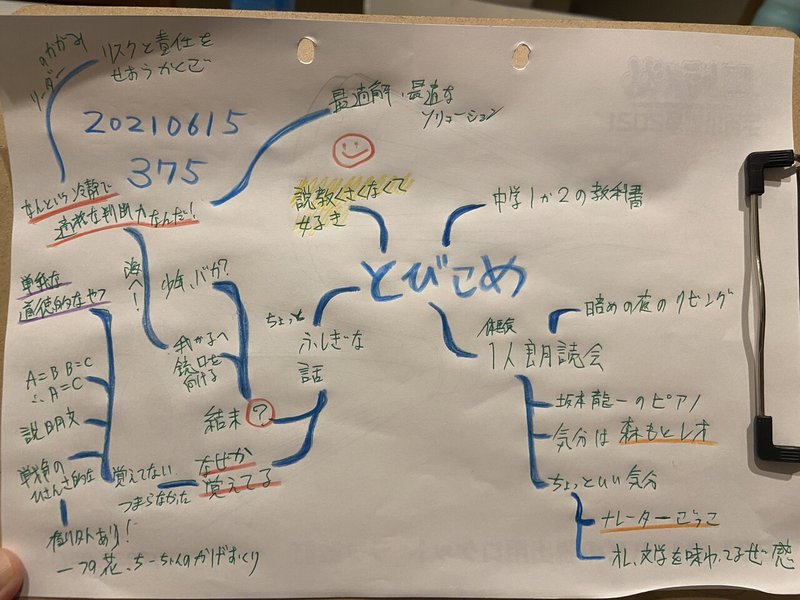 とびこめ
中学1か2の教科書
体験
1人朗読会
暗めの夜のリビング
坂本龍一のピアノ
気分は 森もとレオ
ちょっといい気分
ナレーターごっこ
オレ、文学を味わってるぜ感
ちょっと
ふしぎな
話
なぜか
覚えてる
覚えてない
つまらなかった
単純な
道徳的なやつ
A=B B=C
∴A=C
説明文
戦争の
ひさんさ的な
例外あり!
一つの花、ちーちゃんのかげおくり
結末 ?
少年、バカ?
我が子へ
銃口を
向ける
海へ!
なんという冷静で
適格な判断力なんだ!
リーダー
のかがみ
リスクと責任を
せおうかくご
最適解、最適な
ソリューション
説教くさくなくて
好き
20210615
375